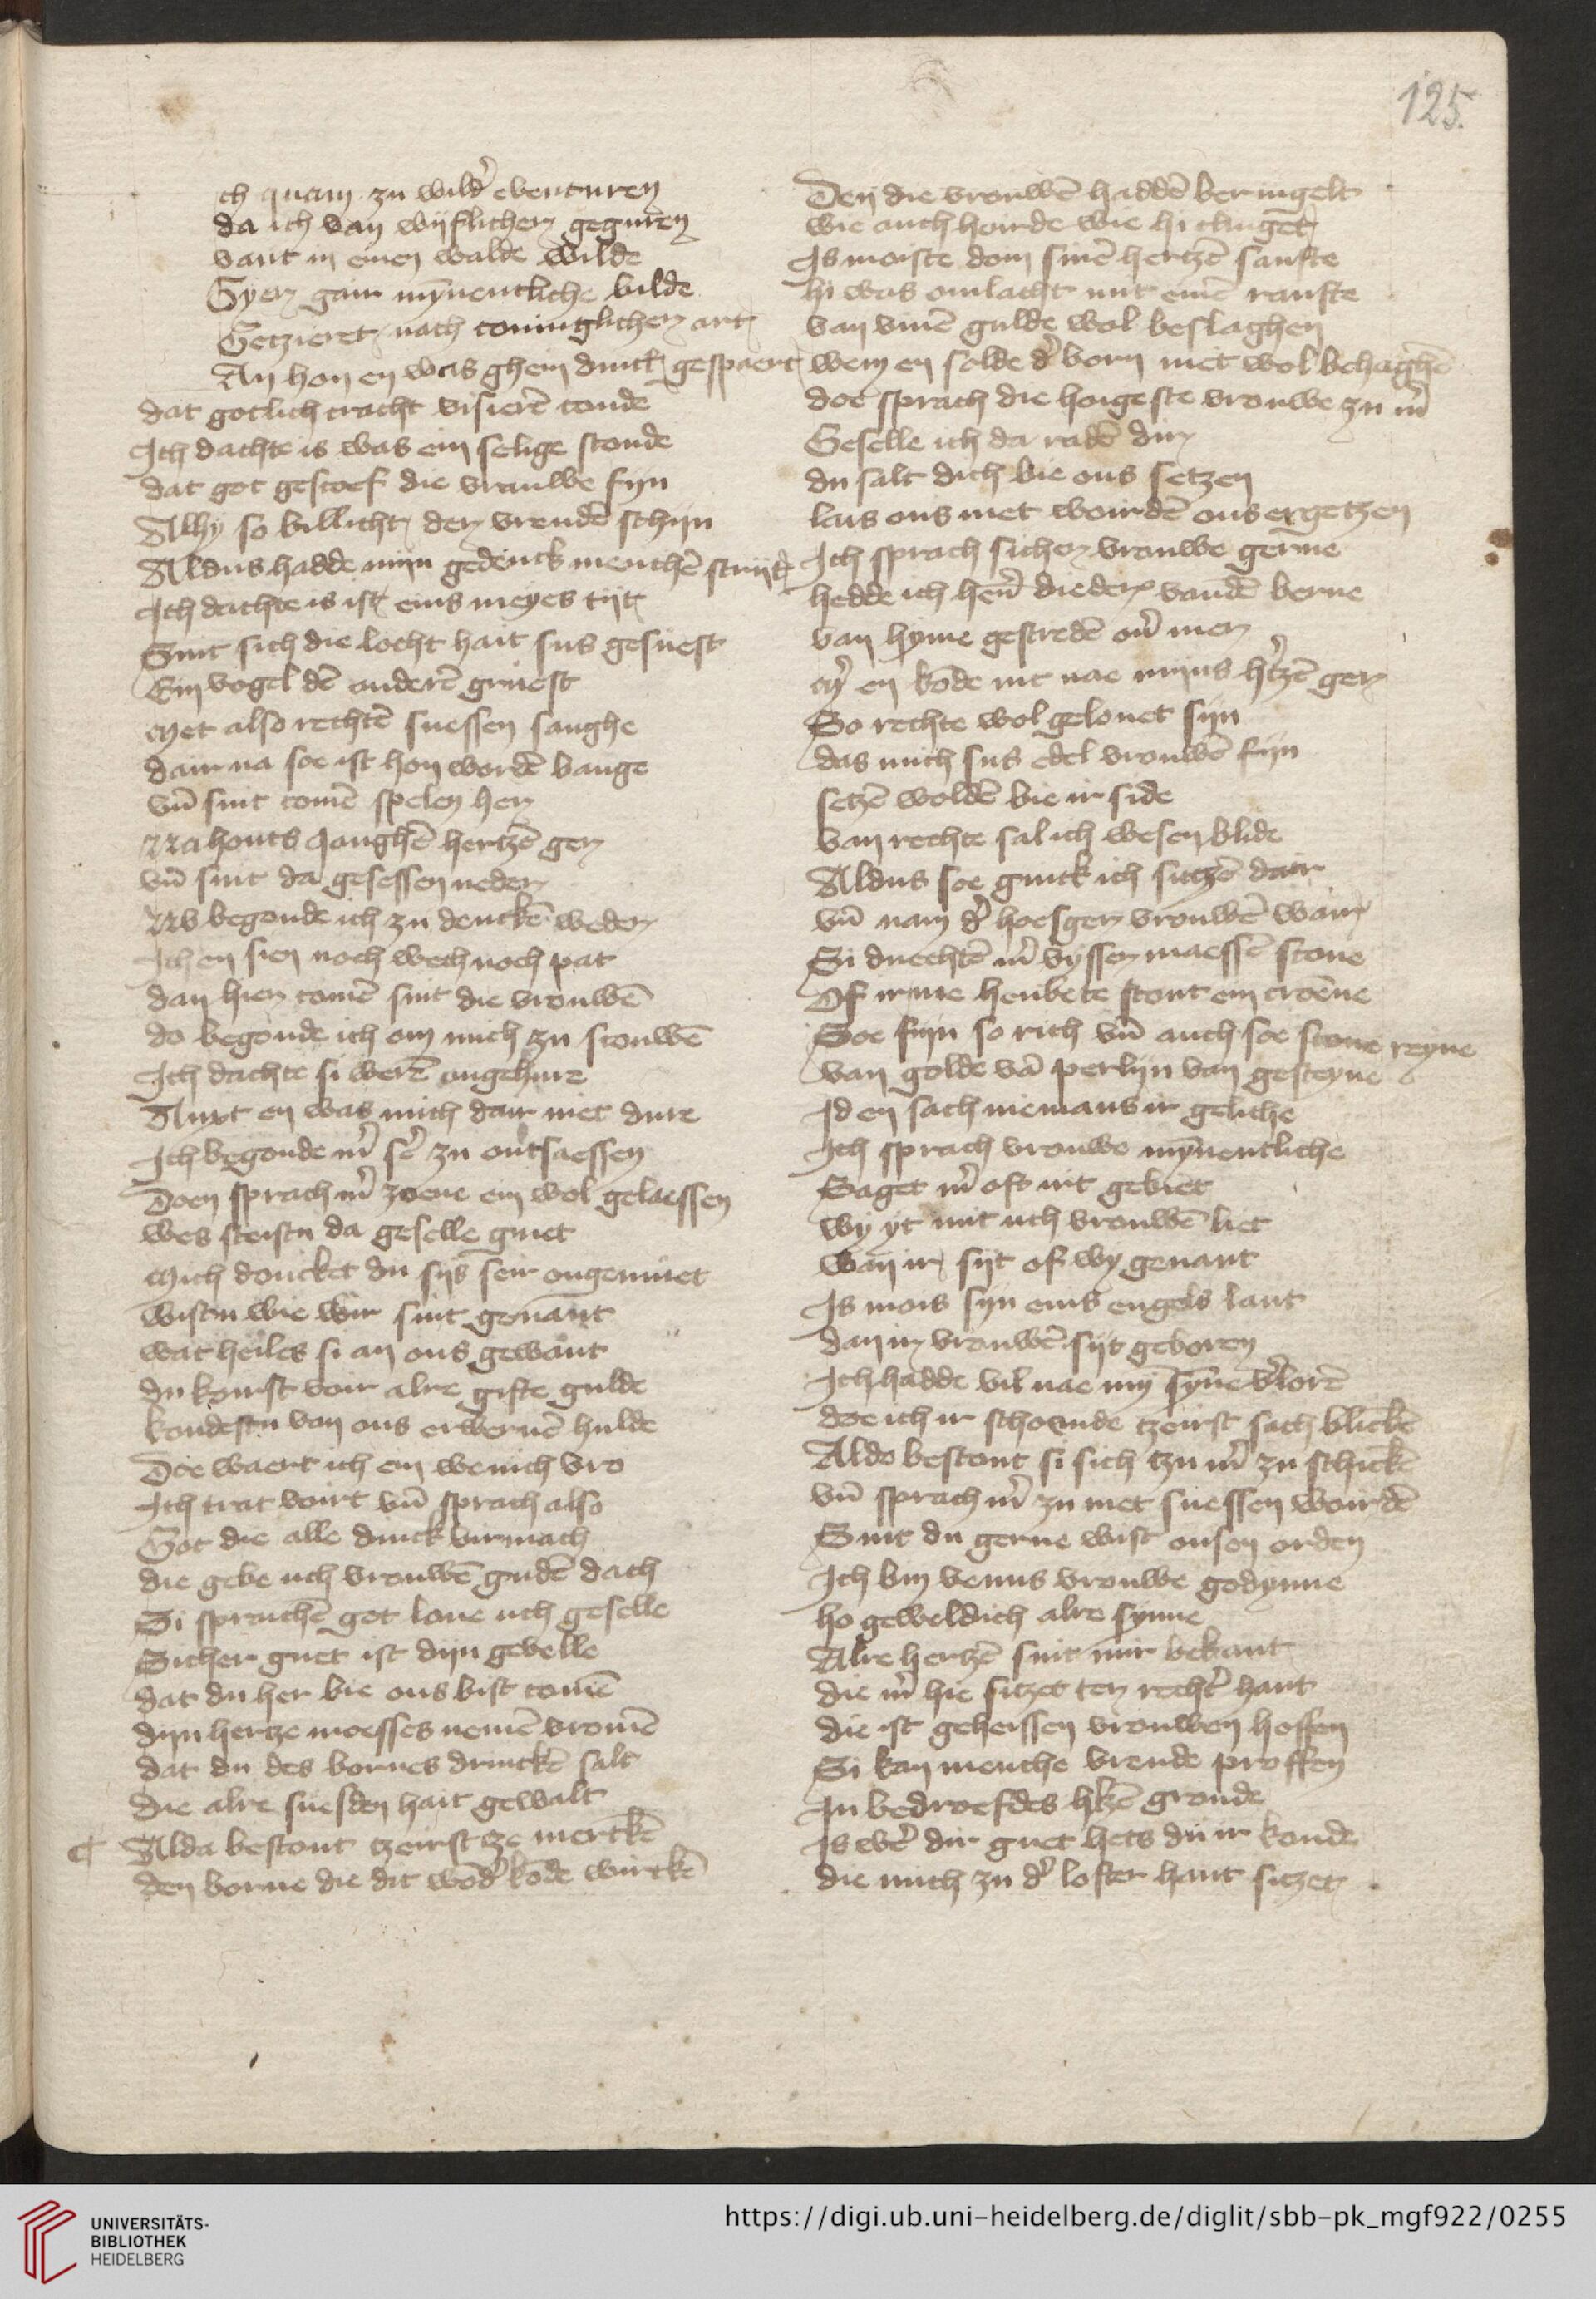 125.
ch quam zu wild' eventuren
da ich van wijflicher geguren
vant in einen walde wilde
Gyer gair mȳnentliche bilde
Getzieret nach coninglicher art
An hon en was ghein dinck gespaert
dat gotlich cracht visierē conde
Ich dachte is was ein selige stonde
dat got gescoef die vrauwe fijn
Alhy so billicht der vreudē schijn
Aldus hadde mijn gedenck menchē strijt
Ich dachte is ist eins meyes tijt
Sint sich die locht hait sus gesuest
Ein vogel dē anderē gruest
Met also rechtē suessen sanghe
dair na soe ist hon wordē bange
vn̄ sint comē spelen her
Na honts janghē hertzē ger
vn̄ sint da gesessen neder
Nv begonde ich zu denckē weder
Ich en sien noch wech noch pat
dan hier comē sint die vrouwē
do begonde ich om mich zu scouwē
Ich dachte si werē ongehure
Anxt en was mich dair niet dure
Ich begonde m' se' zu ontsaessen
Doen sprach m' zoene ein wol gelaessen
wes steistu da geselle guet
Mich doncket du sijs seir ongemuet
wistu wie wir sint genant
wat heiles si an ons gewant
du konst voir alre gifte gulde
kondestu van ons erwervē hulde
Doe waert ich ein wenich vro
Ich trat voirt vn̄ sprach also
Got die alle dinck virmach
die gebe uch vrouwē gudē dach
Si sprachē got lone uch geselle
Sicher guet ist dijn gevelle
dat du her bie ons bist comē
dijn hertze moesses nemē vromē
dat du des bornes drinckē salt
die alre suesden hait gewalt
¶ Alda bestont tzeirst ze merckē
den borne die dit wōd' kōde wirckē
Den die vrouwē haddē beringelt
wie auch hoirde wie hi clinget
Is moiste dom sinē hertzē sanfte
hi was omlacht mit einē ranfte
van vinē gulde wol beslaghen
wem en solde d' born niet wol behaghē
doe sprach die hoigeste vrouwe zu m'
Geselle ich da radē dir
du salt dich bie ons setzen
lais ons met woirdē ons ergetzen
Ich sprach sicher vrouwe gerne
hedde ich hen' dieder vandē berne
van hyme gestredē on' mer
My en kōde nit nae mijns h'tzē ger
So rechte wol gelonet sijn
das mich sus edel vrouwē fijn
setzē woldē bie ir side
van rechte sal ich wesen blide
Aldus soe ginck ich sitzē dair
vn̄ nam d' hoesger vrouwē wair
Si duechtē m' vysser maessē scone
Of irme heubete stont ein croēne
Soe fijn so rich vn̄ auch soe scone reyne
van golde vā perlijn van gesteyne
Id en sach niemans ir geliche
Ich sprach vrouwe mȳnentliche
Saget m' ofs irt gebiet
wy yt mit uch vrouwē liet
wan ir sijt of wy genant
Is mois sijn eins engels lant
dan ir vrouwē sijt geboren
Ich hadde vil nae mȳ sȳne v'lorē
doe ich ir schoende tzeirst sach blickē
Aldo bestont si sich tzu m' zu schickē
vn̄ sprach m' zu met suessen woirdē
Sint du gerne wist onsen orden
Ich bin venus vrouwe godynne
ho geweldich alre synne
Alre hertzē sint mir bekant
die m' hie sitzet ter recht' hant
die ist geheissen vrouwen hoffen
Si kan menche vreude proffen
In bedroefdes h'tzē gronde
Is we' dir guet hets du ir konde
die mich zu d' lofter hant sitzet
UNIVERSITÄTS-
BIBLIOTHEK
HEIDELBERG
https://digi.ub.uni-heidelberg.de/diglit/sbb-pk_mgf922/0255